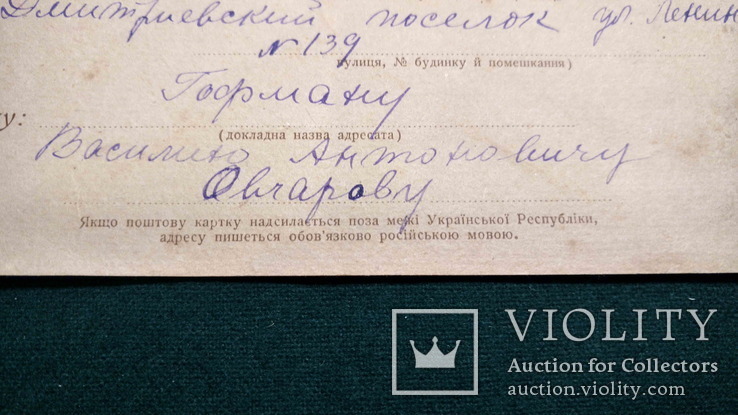 Дмитриевский поселок ул. Ленин
N 139
вулиця, № будинку й помешкання)
Гофману
у:
(докладна назва адресата)
Василию Антоновичу
Овчарову
Якщо поштову картку надсилається поза межі Української Республіки,
адресу пишеться обов'язково російською мовою.
VIOLITY
Auction for Collectors
auction.violity.com